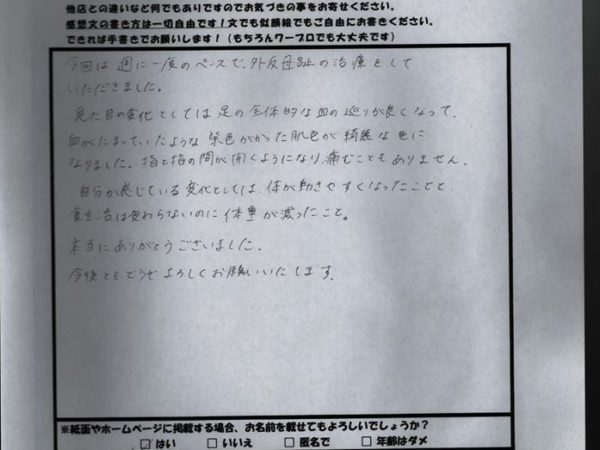 他店との違いなど何でもありですのでお気づきの事をお寄せください。
感想文の書き方は一切自由です！文でも似顔絵でもご自由にお書きください。
できれば手書きでお願いします！（もちろんワープロでも大丈夫です）
今回は週に一度のペースで、外反母趾の治療をして
いただきました。
見た目の変化としては足の全体的な血の巡りが良くなって、
血がたまっていたような紫色がかった肌色が綺麗な色に
なりました。指と指の間が開くようになり、痛むこともありません。
自分が感じている変化としては、体が動きやすくなったことと、
食生活は変わらないのに体重が減ったこと。
本当にありがとうございました。
今後ともどうぞよろしくお願いいたします。
※紙面やホームページに掲載する場合、お名前を載せてもよろしいでしょうか？
□ はい □ いいえ □ 匿名で □ 年齢はダメ